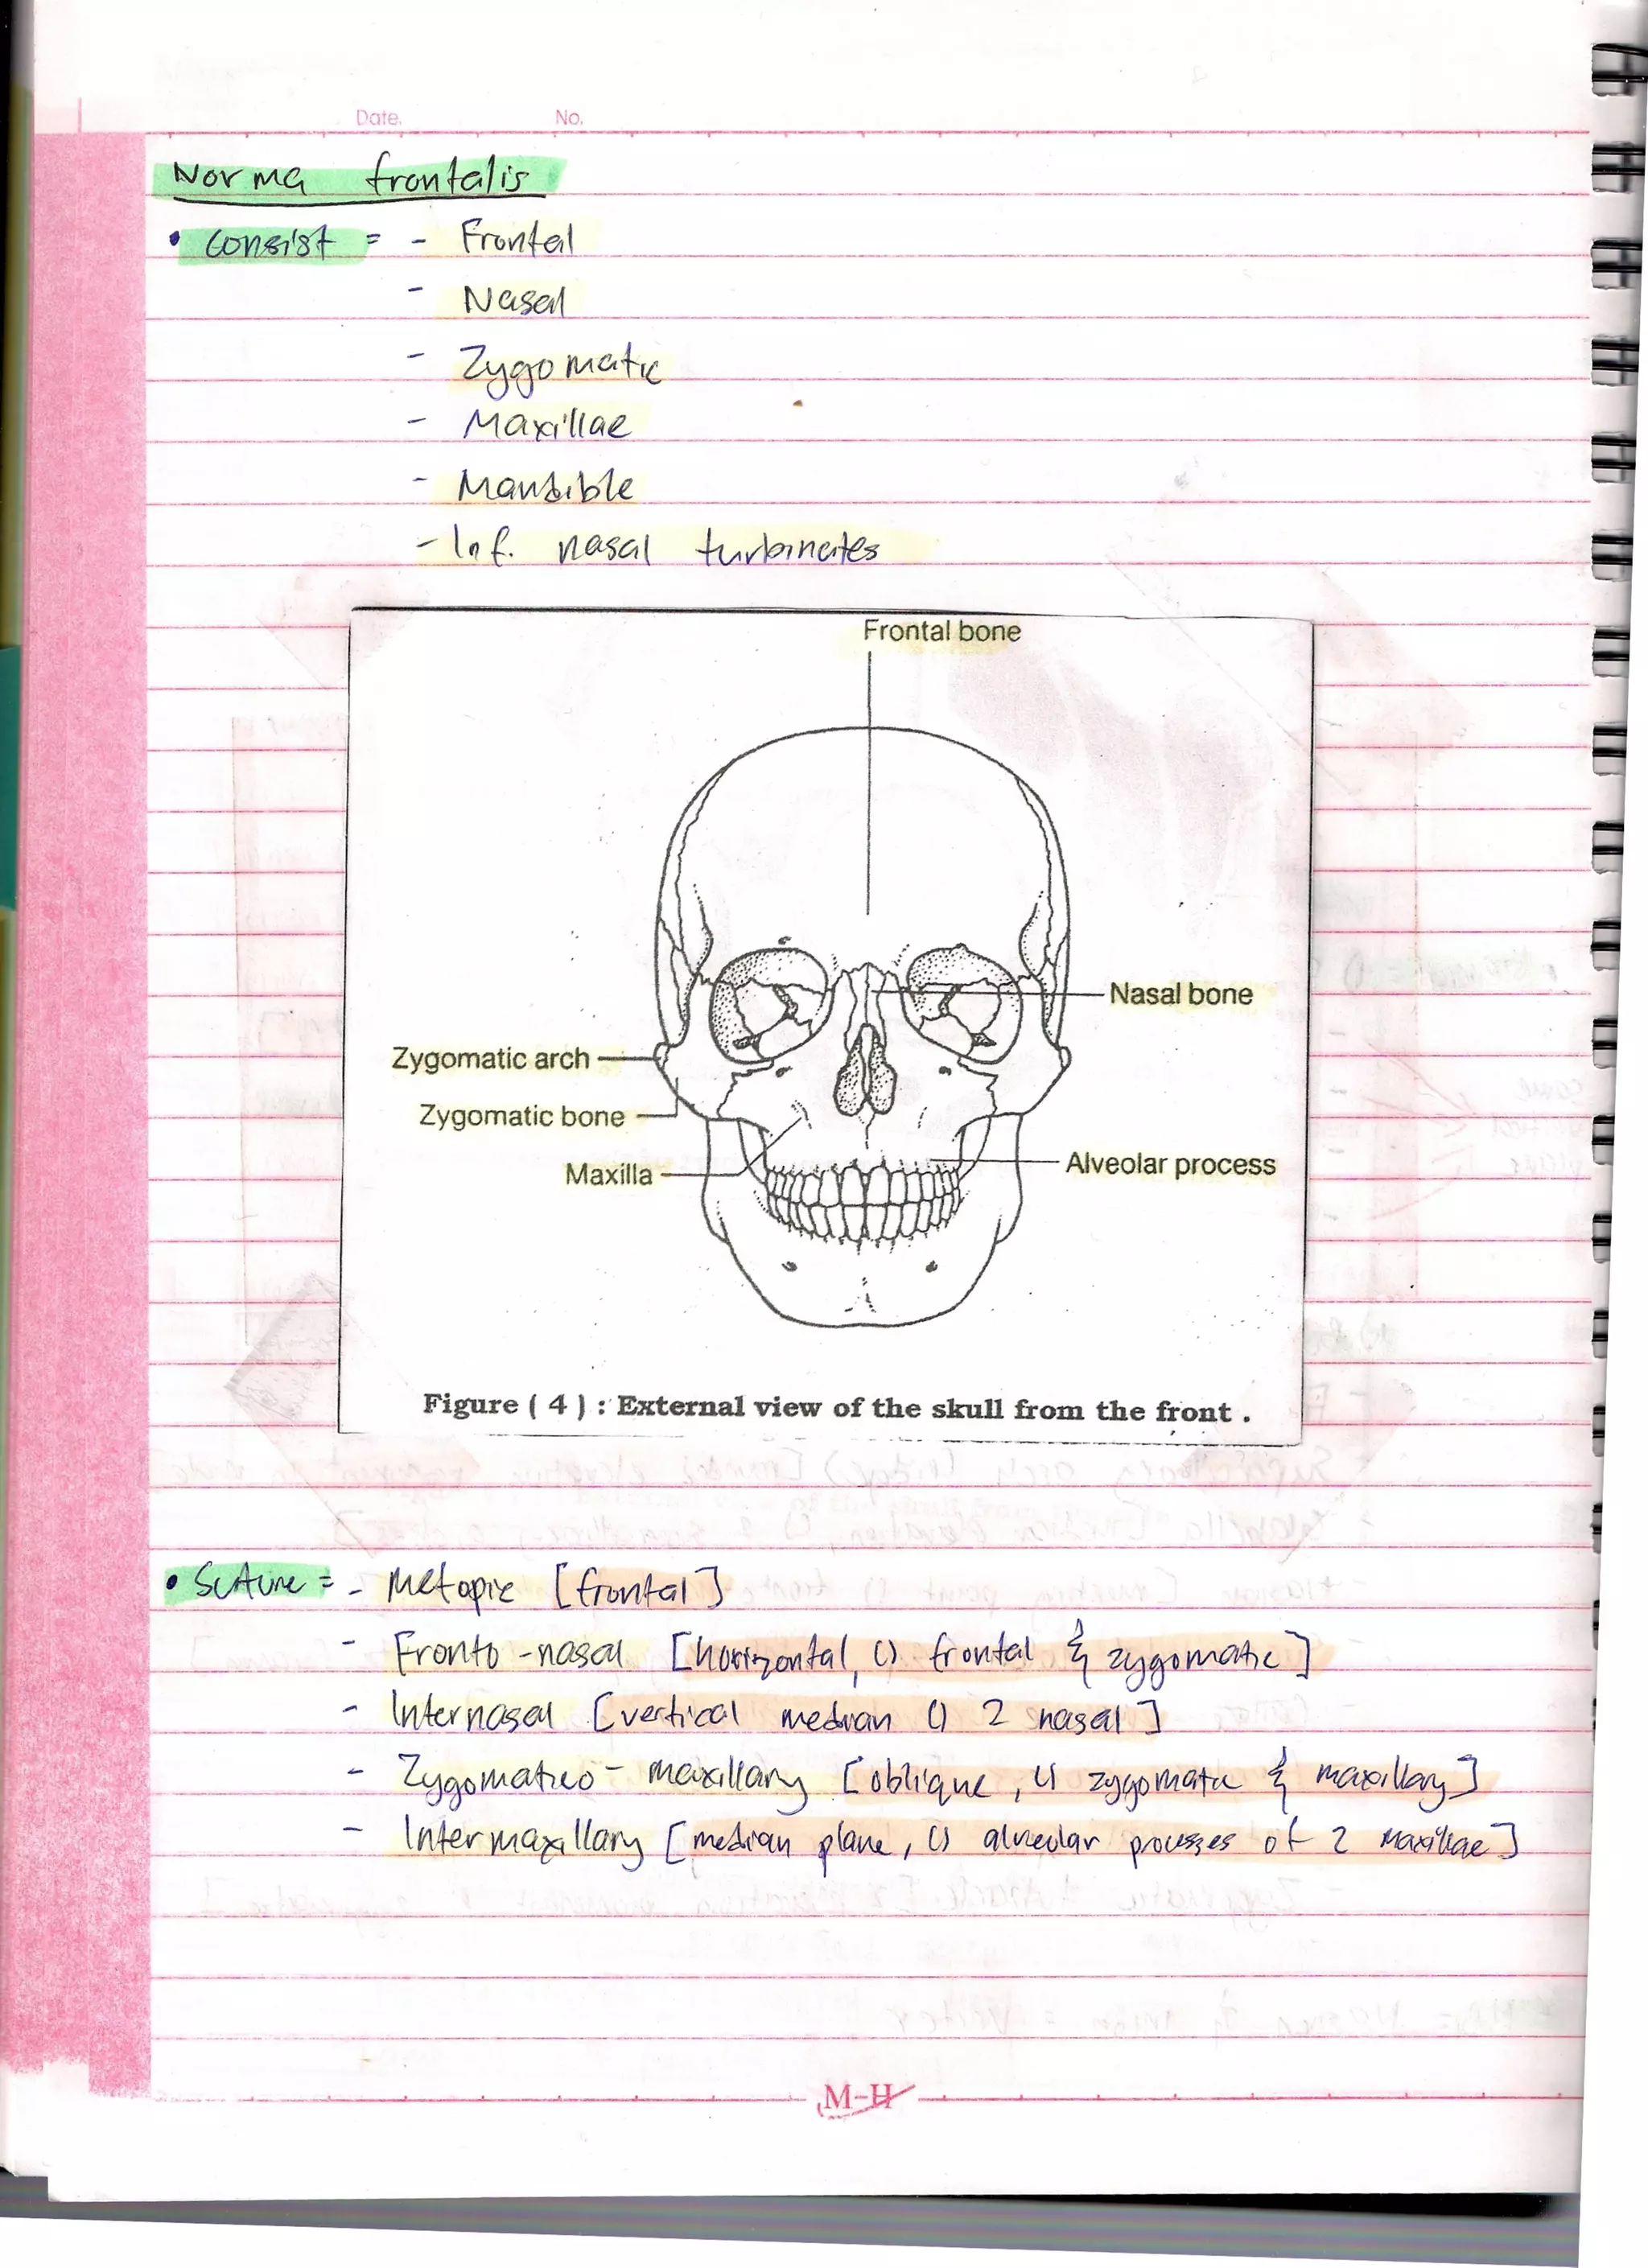 Date. No.
Norma frontalis
• Consist = - Frontal
- Nasal
- Zygomatic
- Maxillae
- Mandible
- Inf. nasal turbinates
Frontal bone
Nasal bone
Zygomatic arch
Zygomatic bone
Alveolar process
Maxilla
Figure ( 4 ) : External view of the skull from the front .
• Suture = - Metopic [frontal]
- Fronto-nasal [horizontal, () frontal & zygomatic]
- Internasal [vertical median () 2 nasal]
- Zygomatico-maxillary [oblique, () zygomatic & maxillary]
- Intermaxillary [median plane, () alveolar processes of 2 maxillae]
M-H